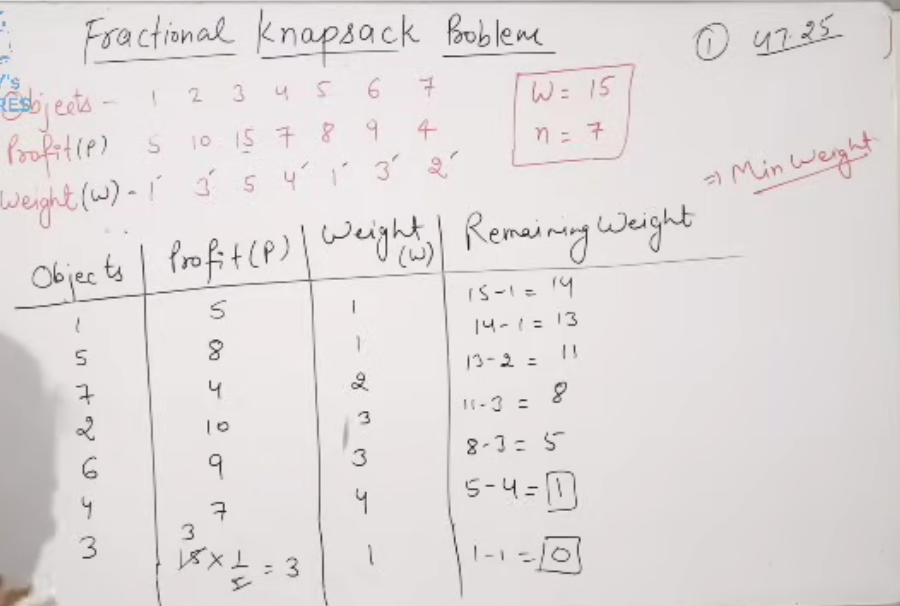 Fractional Knapsack Problem
① 47.25
Objects - 1 2 3 4 5 6 7
Profit (P) 5 10 15 7 8 9 4
Weight (W) - 1 3 5 4 1 3 2
W = 15
n = 7
⇒ Min Weight
Objects Profit (P) Weight (W) Remaining Weight
1 5 1 15-1 = 14
5 8 1 14-1 = 13
7 4 2 13-2 = 11
2 10 3 11-3 = 8
6 9 3 8-3 = 5
4 7 4 5-4 = 1
3 3 15 × 1/5 = 3 1 1-1 = 0